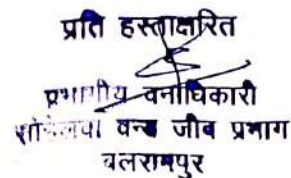 प्रति हस्ताक्षरित
प्रभागीय वनाधिकारी
वन्य जीव प्रभाग
बलरामपुर